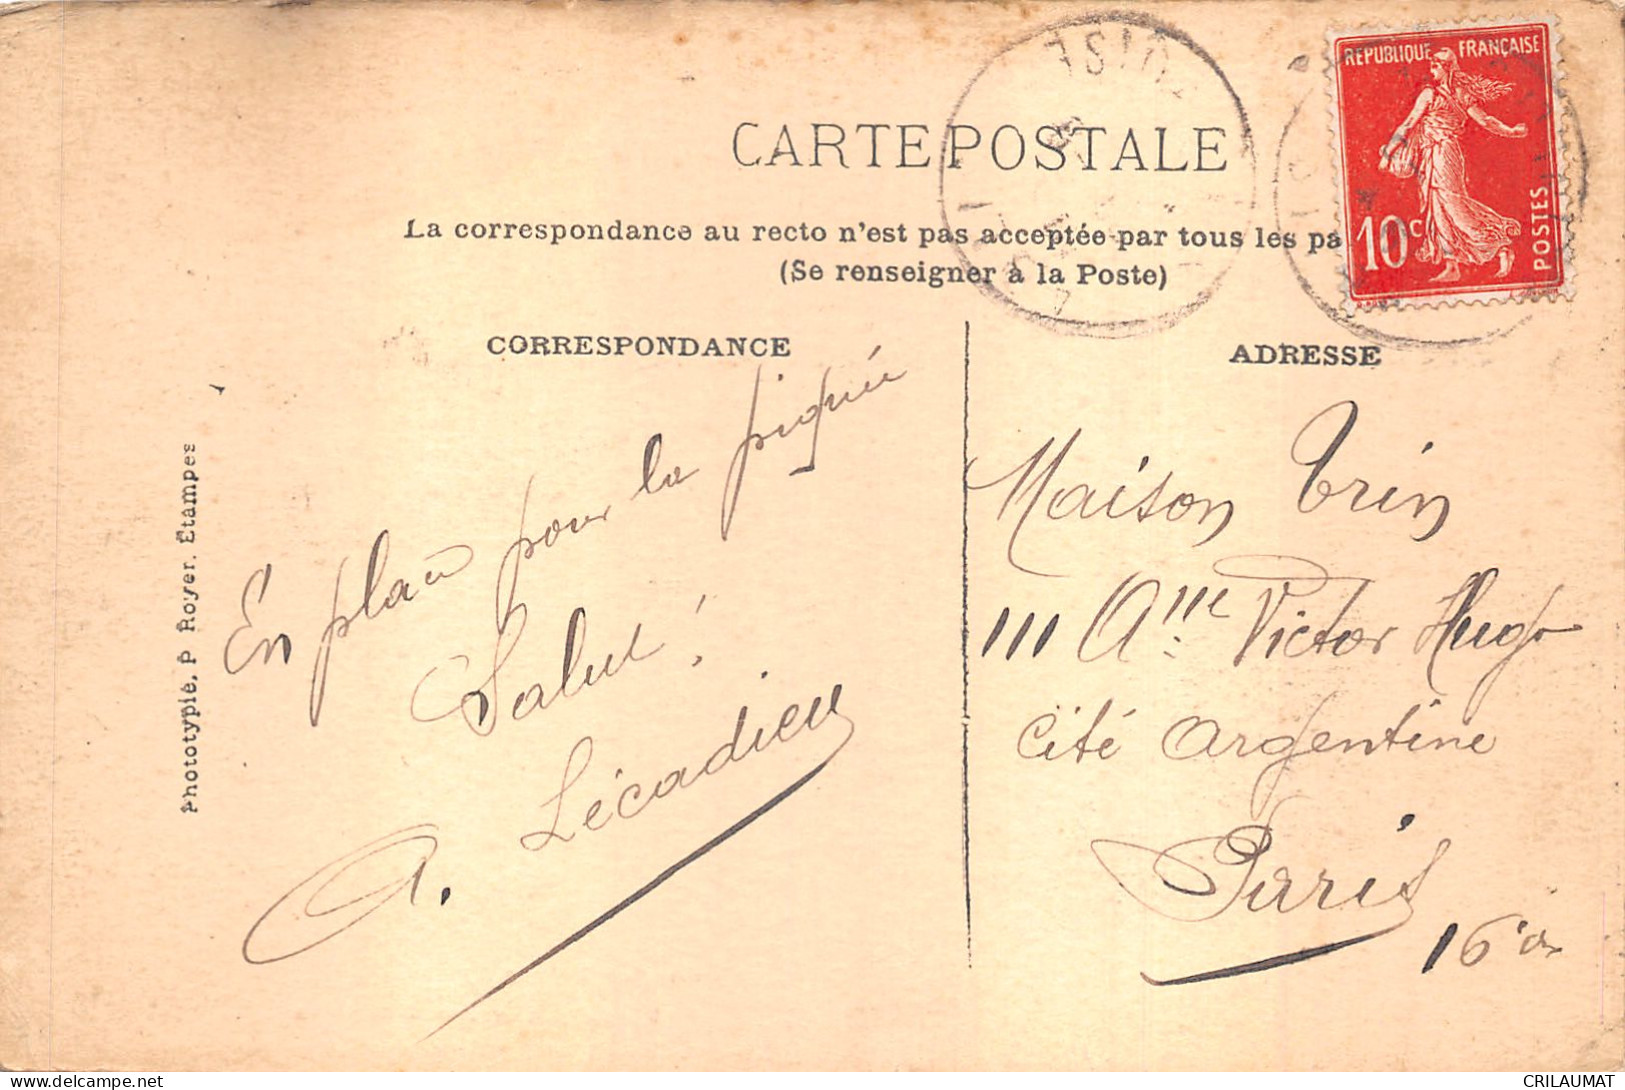 CARTE POSTALE
La correspondance au recto n'est pas acceptée par tous les pa
(Se renseigner à la Poste)
REPUBLIQUE FRANÇAISE
10c
POSTES
CORRESPONDANCE
En place pour la piqûre
Salut !
A. Lécadieu
Phototypie, P Royer. Étampes
ADRESSE
Maison Trin
111 Ave Victor Hugo
Cité Argentine
Paris
16
CRILAUMAT